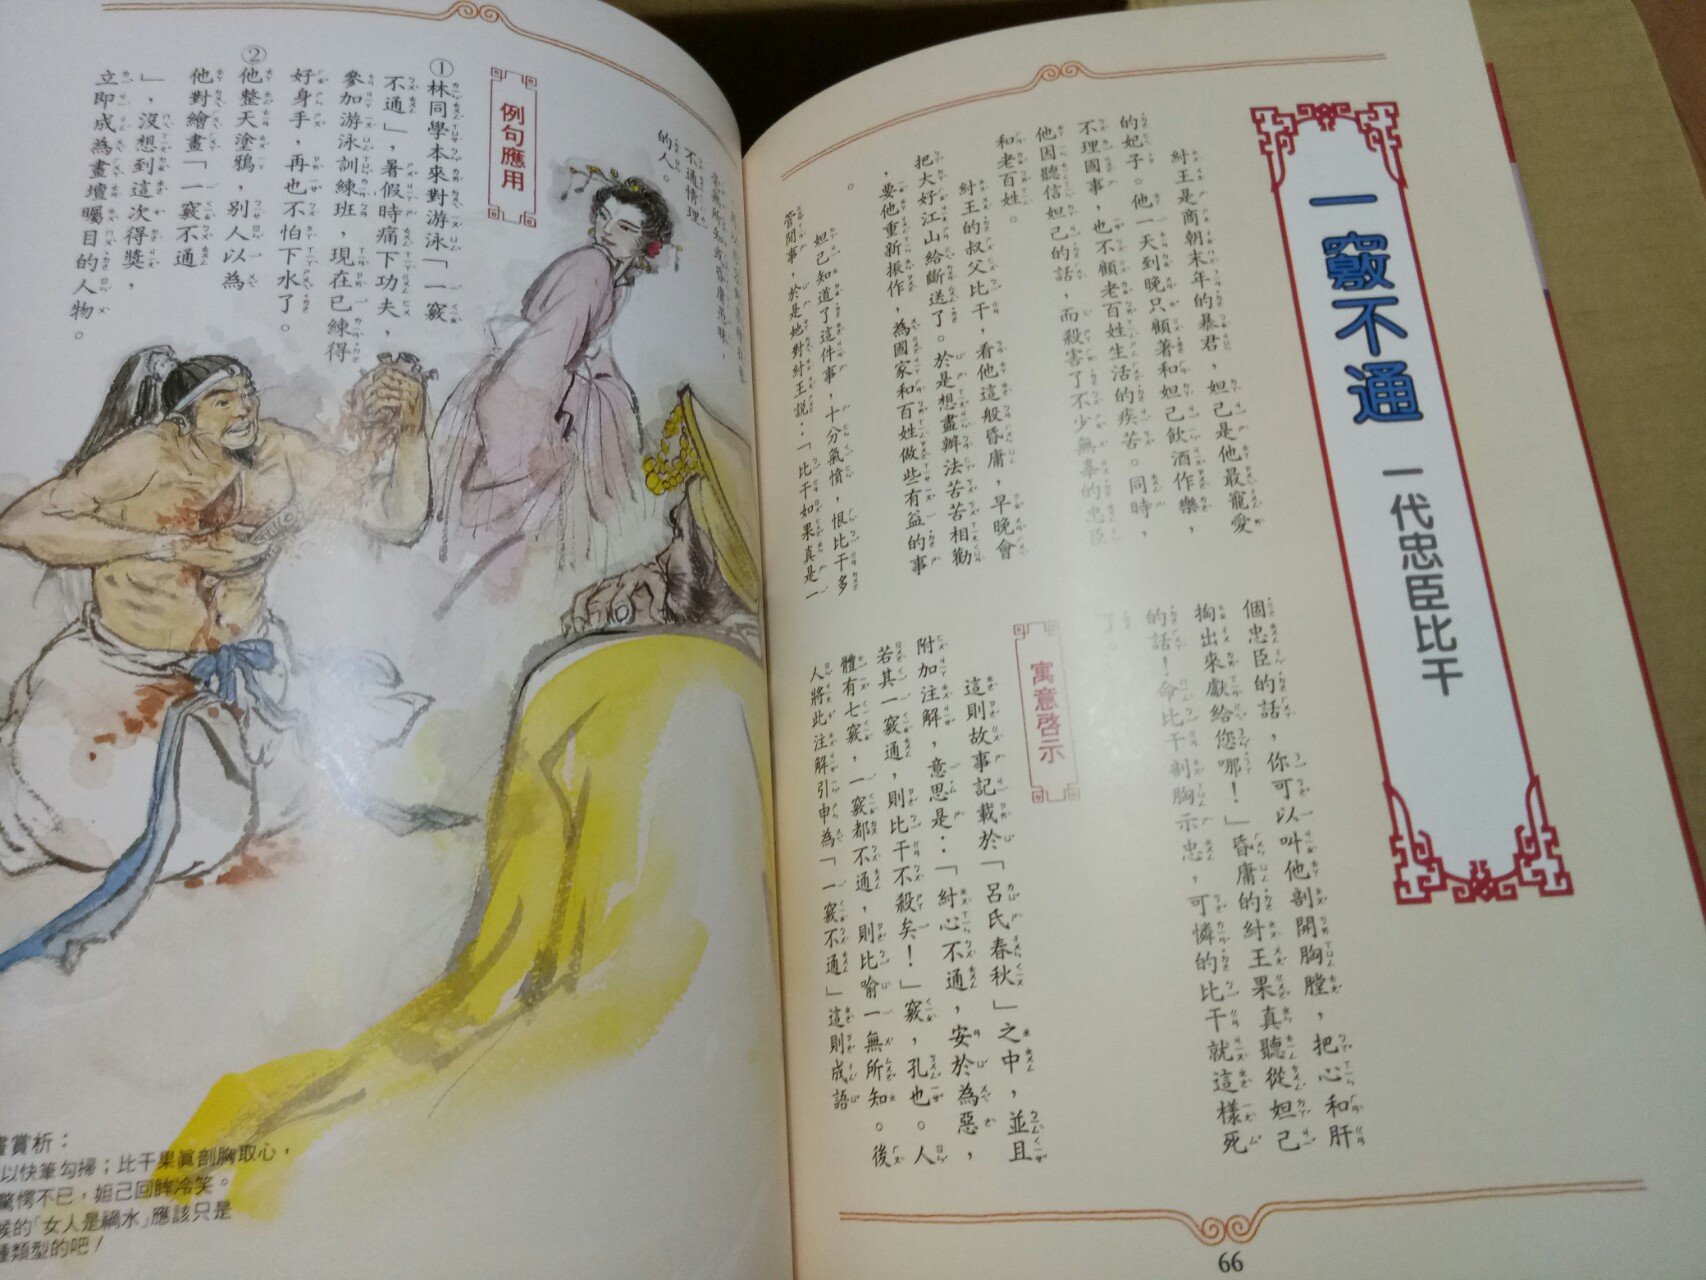 一竅不通 一代忠臣比干
紂王是商朝末年的暴君，妲己是他最寵愛
的妃子。他一天到晚只顧著和妲己飲酒作樂，
不理國事，也不顧老百姓生活的疾苦。同時，
他因聽信妲己的話，而殺害了不少無辜的忠臣
和老百姓。
紂王的叔父比干，看他這般昏庸，早晚會
把大好江山給斷送了。於是想盡辦法苦苦相勸
，要他重新振作，為國家和百姓做些有益的事
。
妲己知道了這件事，十分氣憤，恨比干多
管閒事，於是她對紂王說：「比干如果真是一
個忠臣的話，你可以叫他剖開胸膛，把心和肝
掏出來獻給您哪！」昏庸的紂王果真聽從妲己
的話！命比干剖胸示忠，可憐的比干就這樣死
了。
寓意啟示
這則故事記載於「呂氏春秋」之中，並且
附加注解，意思是：「紂心不通，安於為惡，
若其一竅通，則比干不殺矣！」竅，孔也。人
體有七竅，一竅都不通，則比喻一無所知。後
人將此注解引申為「一竅不通」這則成語
66
不通情理
的人。
例句應用
①林同學本來對游泳「一竅
不通」，暑假時痛下功夫，
參加游泳訓練班，現在已練得
好身手，再也不怕下水了。
②他整天塗鴉，別人以為
他對繪畫「一竅不通
」，沒想到這次得獎，
立即成為畫壇矚目的人物。
畫賞析：
以快筆勾掃；比干果真剖胸取心，
驚愕不已，妲己回眸冷笑。
候的「女人是禍水」應該只是
種類型的吧！